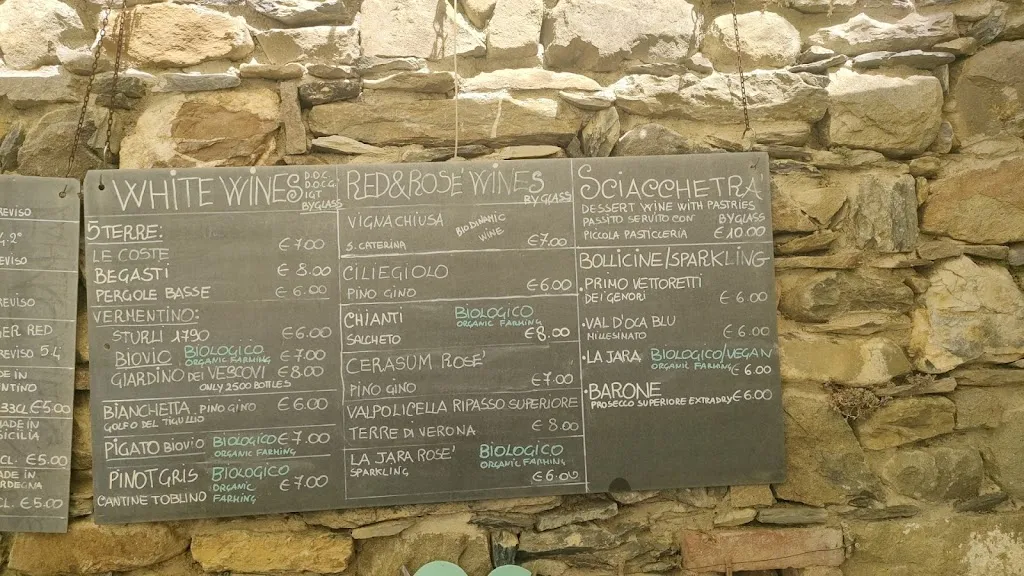 EVISO
4.2°
EVISO
REVISO
ER RED
REVISO 5.4
DE IN
ENTINO
33CL €5.00
ADE IN
SICILIA
CL. €5.00
ADE IN
RDEGNA
CL. €5.00
WHITE WINES D.O.C.
D.O.C.G.
IGT
BY GLASS
5 TERRE:
LE COSTE €7.00
BEGASTI €8.00
PERGOLE BASSE €6.00
VERMENTINO:
STURLI 1790 €6.00
BIOVIO BIOLOGICO €7.00
ORGANIC FARMING
GIARDINO DEI VESCOVI €8.00
ONLY 2500 BOTTLES
BIANCHETTA PINO GINO €6.00
GOLFO DEL TIGULLIO
PIGATO BIOVIO BIOLOGICO €7.00
ORGANIC FARMING
PINOT GRIS BIOLOGICO
ORGANIC €7.00
CANTINE TOBLINO FARMING
RED&ROSE' WINES
BY GLASS
VIGNACHIUSA BIODINAMIC
WINE
S. CATERINA €7.00
CILIEGIOLO
PINO GINO €6.00
CHIANTI BIOLOGICO
ORGANIC FARMING
SALCHETO €8.00
CERASUM ROSE'
PINO GINO €7.00
VALPOLICELLA RIPASSO SUPERIORE
TERRE DI VERONA €8.00
LA JARA ROSE' BIOLOGICO
SPARKLING ORGANIC FARMING
€6.00
SCIACCHETRA
DESSERT WINE WITH PASTRIES
PASSITO SERVITO CON BY GLASS
PICCOLA PASTICCERIA €10.00
BOLLICINE/SPARKLING
•PRIMO VETTORETTI
DEI GENORI €6.00
•VAL D'OCA BLU
MILLESIMATO €6.00
•LA JARA BIOLOGICO/VEGAN
ORGANIC FARMING €6.00
•BARONE
PROSECCO SUPERIORE EXTRADRY €6.00